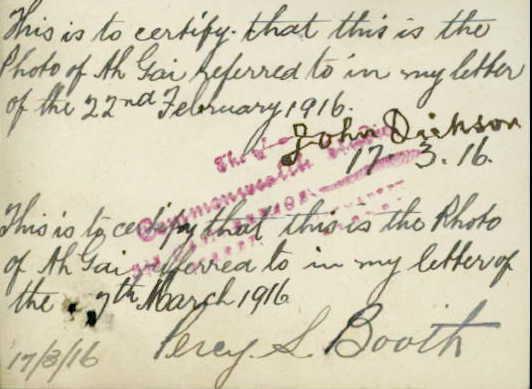 This is to certify that this is the
Photo of Ah Gai referred to in my letter
of the 22nd February 1916.
John Dickson
17. 3. 16.
The
Commonwealth
This is to certify that this is the Photo
of Ah Gai referred to in my letter of
the 9th March 1916
Percy S Booth
17/3/16